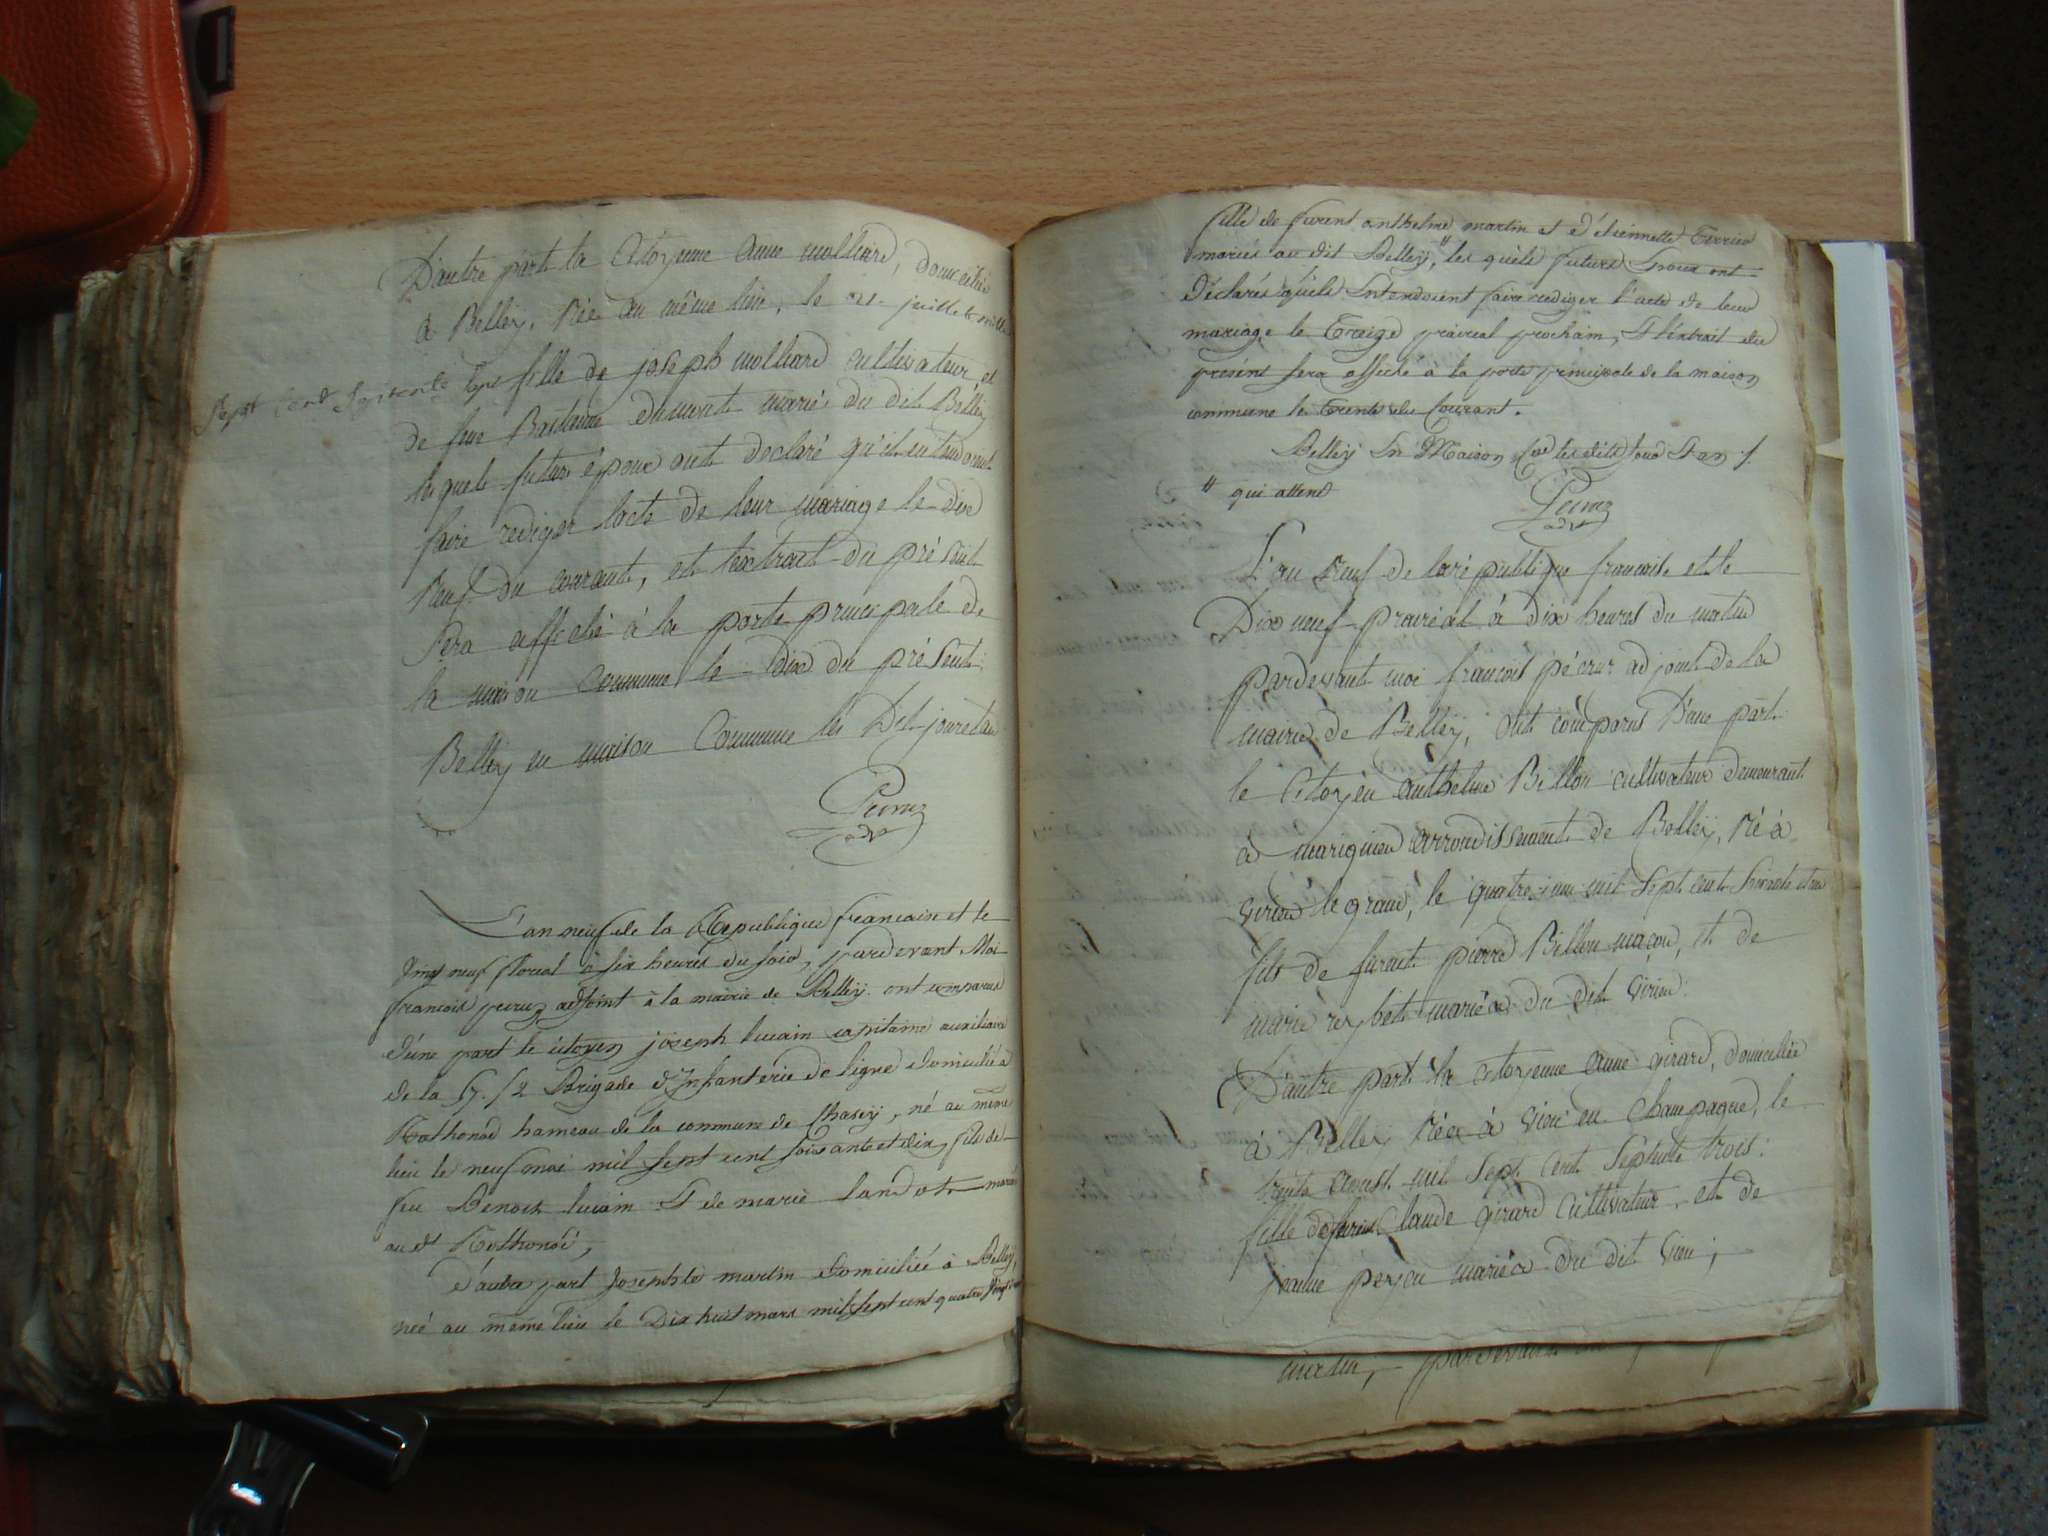 D'autre part la Citoyenne anne molliard, domiciliée
à Belley, Née au même lieu, le 21 juillet mille
Sept Cent Septente fille de joseph molliard cultivateur et
de feue dumont mariés du dit Belley
lequels futurs époux ont declaré qu'ils entendoient
faire rediger l'acte de leur mariage le dix
Neuf du courant, et l'extrait du présent
Sera affiché à la porte principale de
la maison Commune le dix du présent
Belley en maison Commune les Dit jour et an
Peiruz
adjt
L'an neuf de la République francaise et le
Vingt neuf floreal à six heures du soir, pardevant Moi
francois peiruz adjoint à la mairie de Belleÿ ont comparus
d'une part le citoyen joseph lucain capitaine auxiliaire
de la 57. /2 Brigade d'Infanterie de ligne domicilié à
Rothonod hameau de la commune de Chaseÿ, né au même
lieu le neuf mai mil sept cent soixante et dix, fils de
feu Benoit lucain & de marie landot mariés
au dt Rothonod,
d'autre part Josephte martin domiciliée à Belleÿ,
née au même lieu le Dix huit mars mil sept cent quatre Vingt
fille de furent anthelme martin et d'étiennette Terrier
mariés au dit Belleÿ, # les quels futurs Epoux ont
Déclarés qu'ils Entendoient faire rediger l'acte de leur
mariage le Treize prairial prochain, & l'extrait du
présent sera affiché à la porte principale de la maison
commune le Trente du Courant.
Belleÿ En Maison Cne les dits Jour & an /.
# qui attend
Peiruz
adjt
L'an Neuf de la république francoise et le
Dix neuf prairéal à dix heures du matin
pardevant moi francois péiruz adjoint de la
mairie de Belleÿ, ont comparus D'une part
le Citoyen anthelme Billon cultivateur demeurant
à marignieu arrondissement de Belleÿ, Né à
virieu le grand, le quatre juin mil Sept cent Soixante et
fils de furent pierre Billon maçon, et de
marie reybet mariés du dit virieu
D'autre part la citoyenne anne girard, domiciliée
à Belley Née à vieu en Champagne, le
trente Aoust mil Sept Cent Septente trois.
fille de furent Claude girard Cultivateur, et de
jeanne perjou mariés du dit vieu;
matin, pardevant